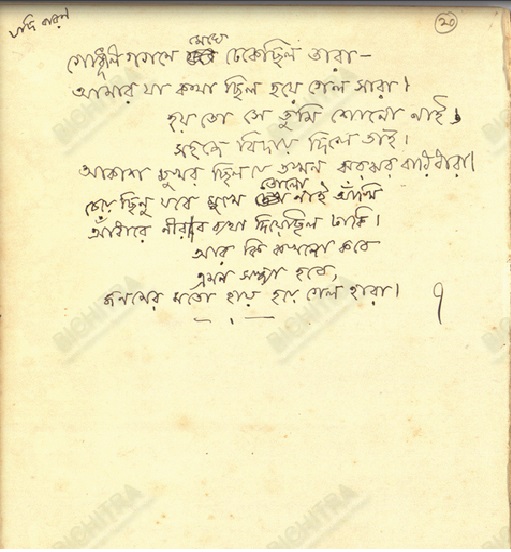 যদি বারণ
২০
গোধূলি গগনে মেঘে ঢেকেছিল তারা—
আমার যা কথা ছিল হয়ে গেল সারা।
হয় তো সে তুমি শোনো নাই,
সহজে বিদায় দিলে তাই।
আকাশ মুখর ছিল যে তখন ঝরঝর বারিধারা।
চেয়েছিনু যবে মুখে তোলো নাই আঁখি
আঁধারে নীরব ব্যথা দিয়েছিল ঢাকি।
আর কি কখনো কবে
এমন সন্ধ্যা হবে,
জনমের মতো হায় হয়ে গেল হারা।
BICHITRA